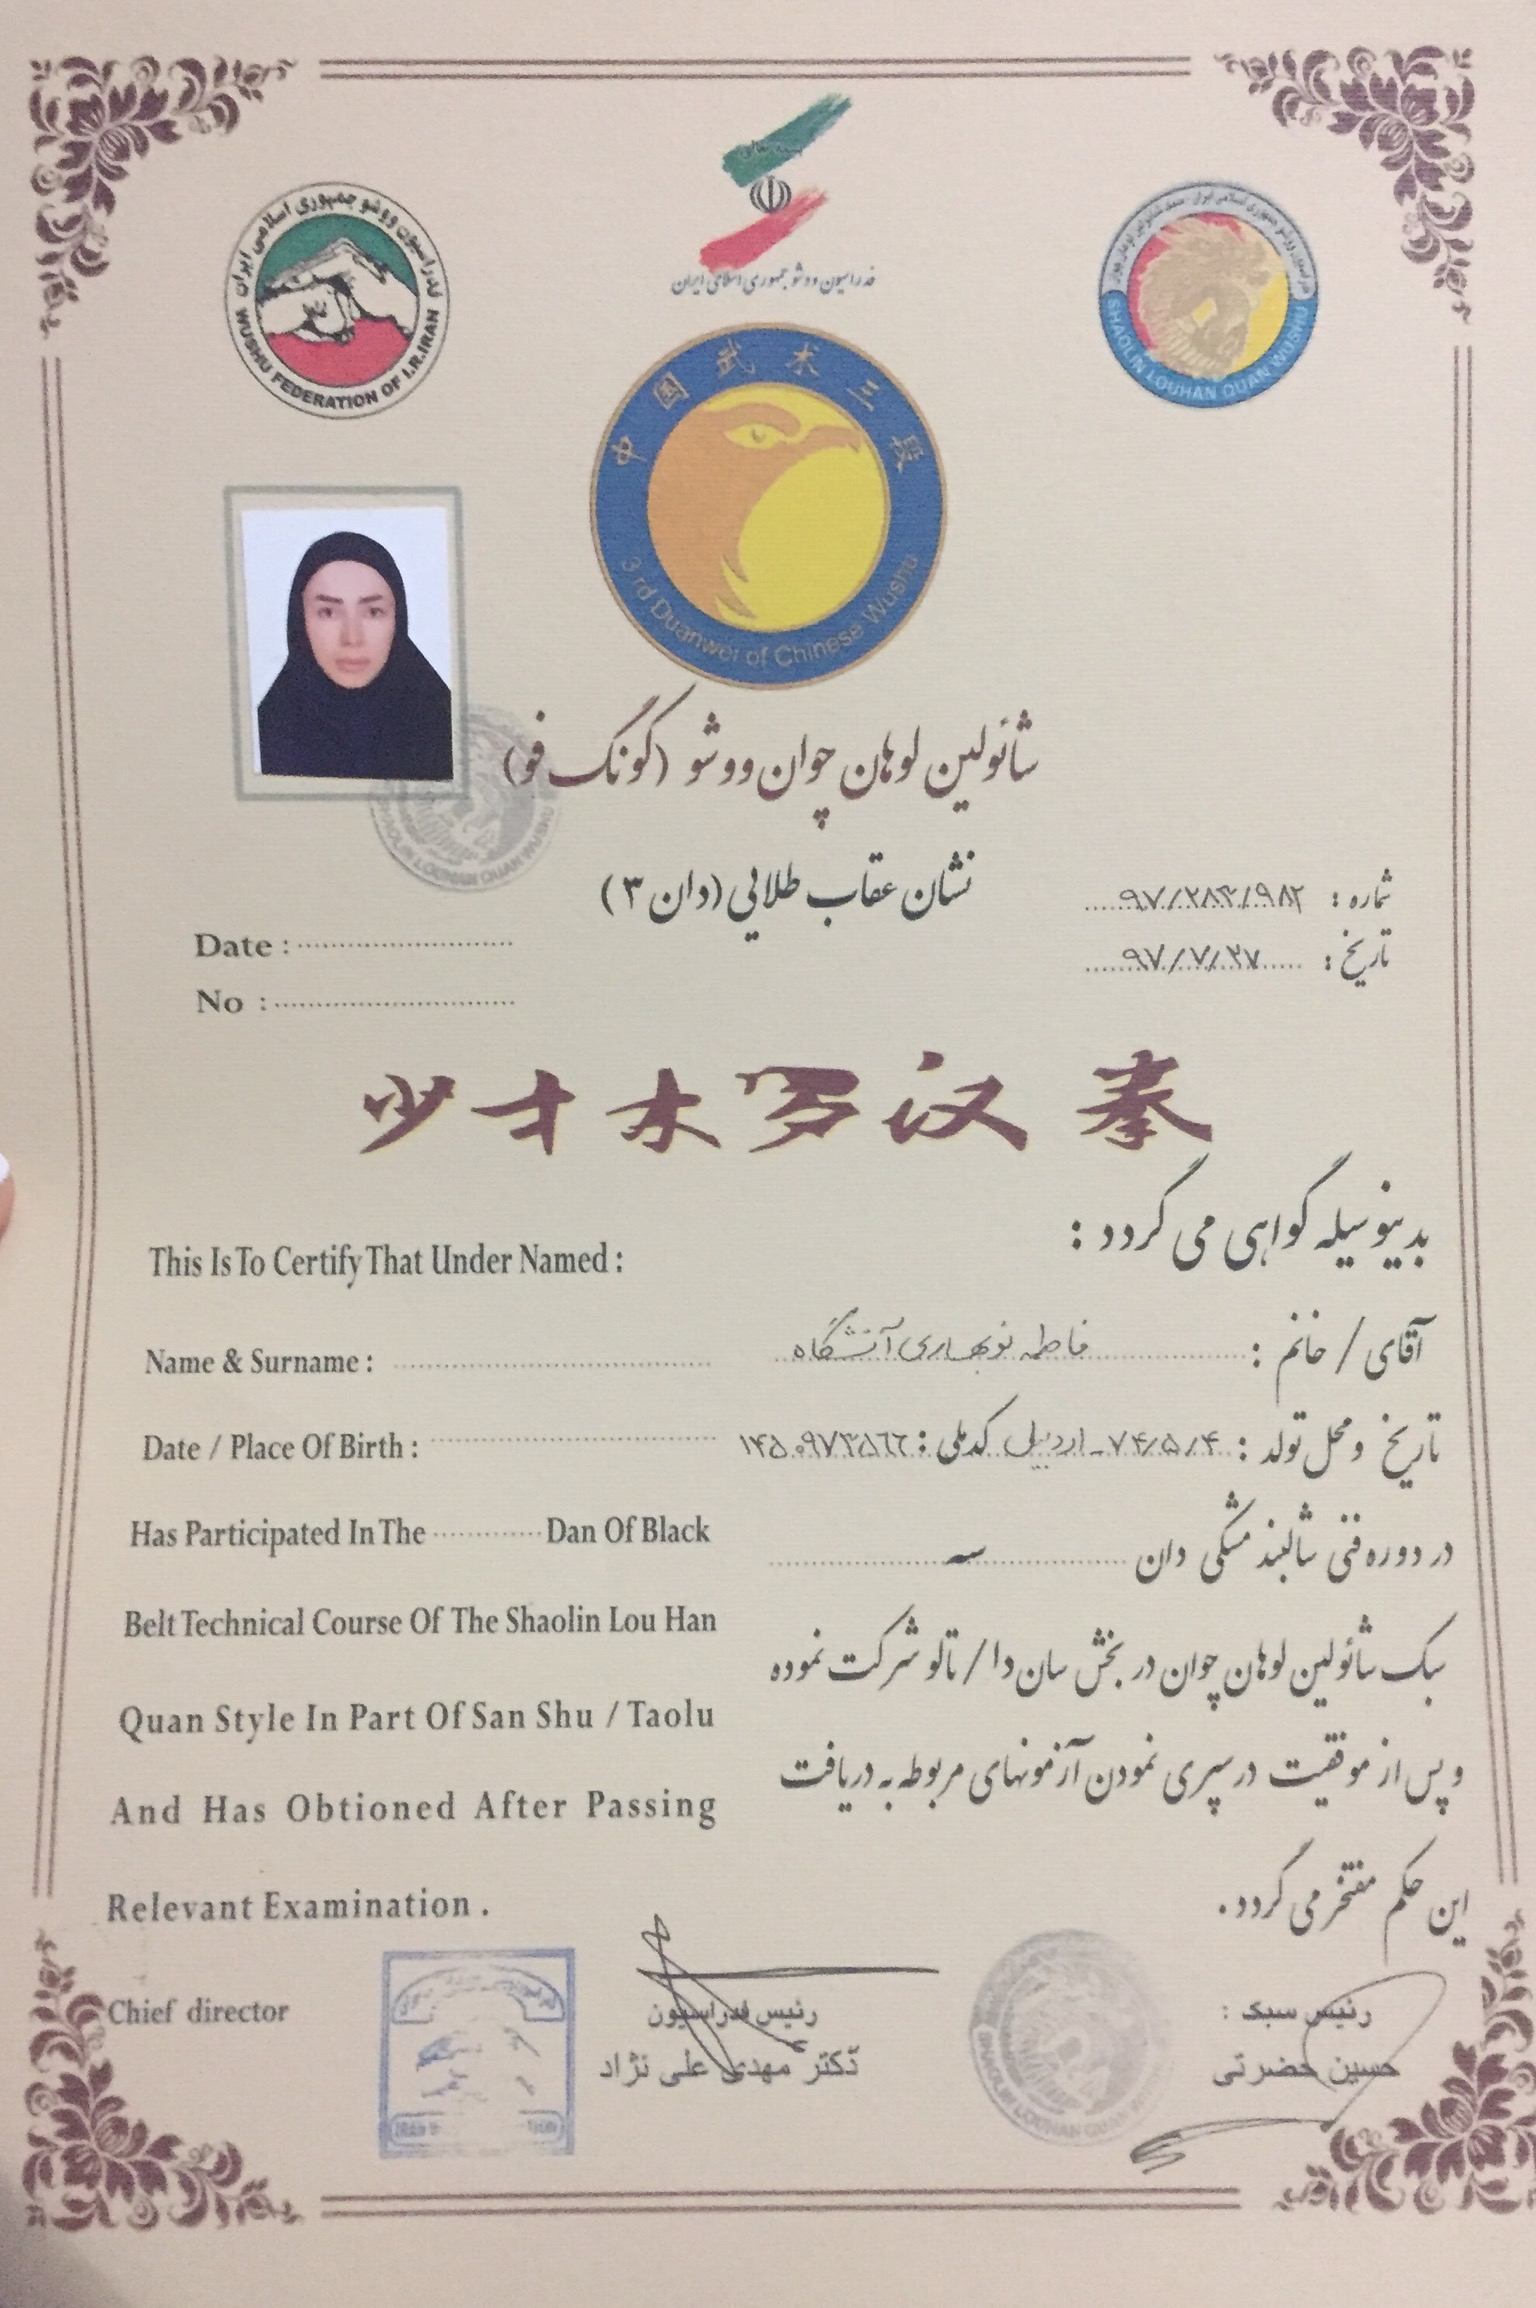 بسمه تعالی
فدراسیون ووشو جمهوری اسلامی ایران
فدراسیون ووشو جمهوری اسلامی ایران
WUSHU FEDERATION OF I.R.IRAN
SHAOLIN LOUHAN QUAN WUSHU
中国武术三段
3 rd Duanwei of Chinese Wushu
شائولین لوهان چوان ووشو (کونگ فو)
SHAOLIN LOUHAN QUAN WUSHU
نشان عقاب طلایی (دان ۳)
شماره : ۹۷/۲۸۳/۹۸۲
تاریخ : ۹۷/۷/۲۷
Date :
No :
少才木罗汉拳
بدینوسیله گواهی می گردد :
This Is To Certify That Under Named :
آقای / خانم : فاطمه نوبهاری آتشگاه
Name & Surname :
تاریخ و محل تولد : ۷۴/۵/۴ - اردبیل کدملی : ۱۴۵۰۹۷۳۵۶۶
Date / Place Of Birth :
در دوره فنی شالبند مشکی دان سه
Has Participated In The Dan Of Black
سبک شائولین لوهان چوان در بخش سان دا / تالو شرکت نموده
Belt Technical Course Of The Shaolin Lou Han
و پس از موفقیت در سپری نمودن آزمونهای مربوطه به دریافت
Quan Style In Part Of San Shu / Taolu
این حکم مفتخر می گردد .
And Has Obtioned After Passing
Relevant Examination .
Chief director
رئیس فدراسیون
دکتر مهدی علی نژاد
رئیس سبک :
حسین حضرتی
SHAOLIN LOUHAN QUAN WUSHU